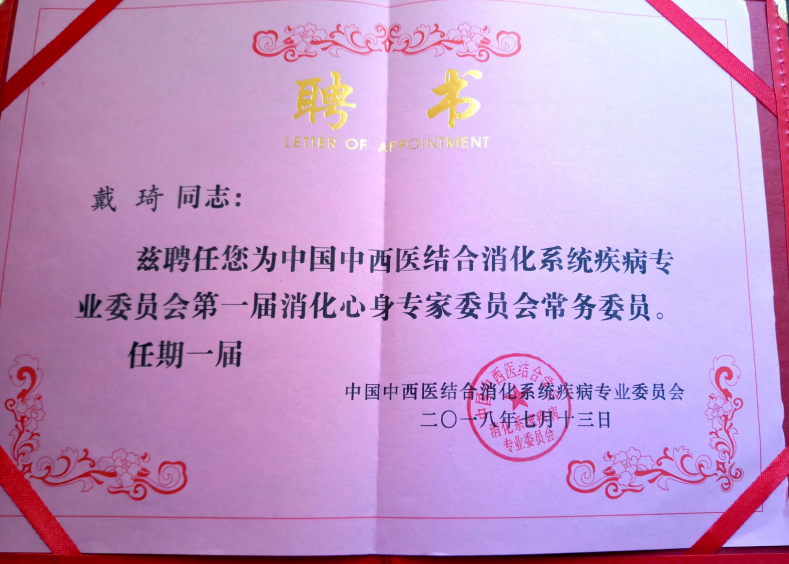 聘书
LETTER OF APPOINTMENT
戴 琦 同志：
兹聘任您为中国中西医结合消化系统疾病专
业委员会第一届消化心身专家委员会常务委员。
任期一届
中国中西医结合消化系统疾病专业委员会
二〇一八年七月十三日
中国中西医结合学会
消化系统疾病
专业委员会